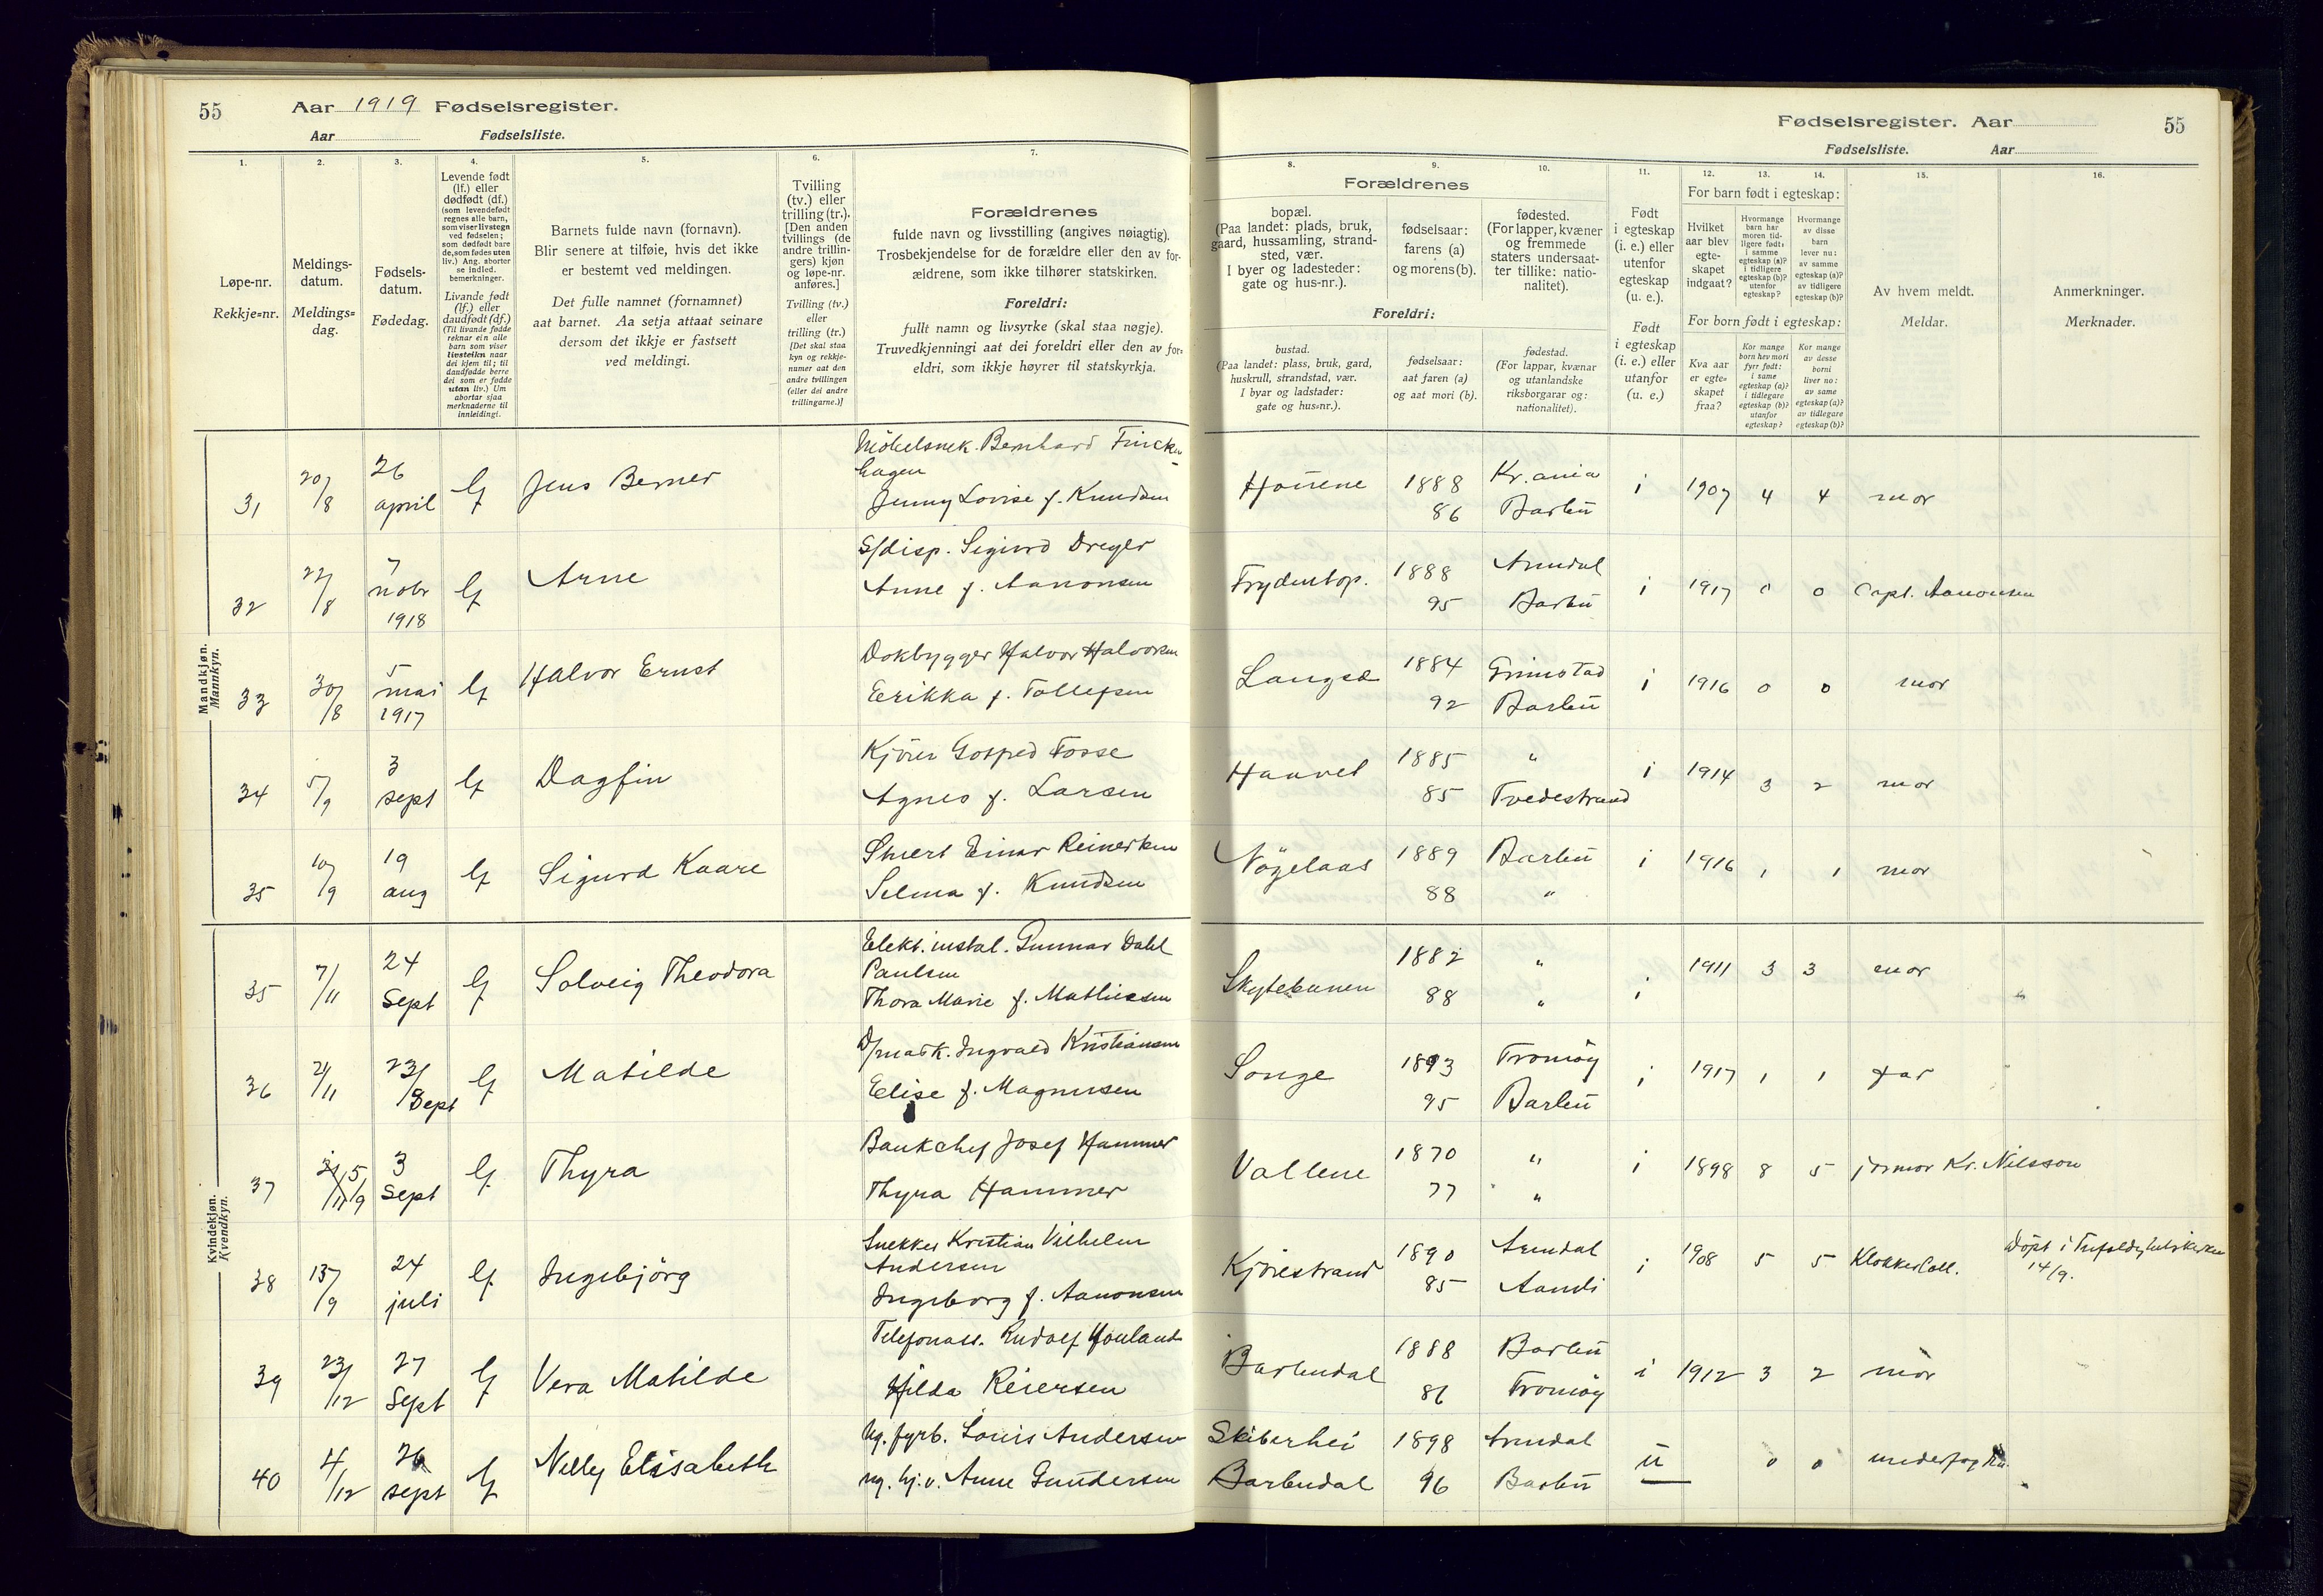 55 Aar 1919 Fødselsregister.
Aar Fødselsliste.
1. 2. 3. 4. 5. 6. 7.
Løpe-nr.
Rekkje=nr.
Meldings-
datum.
Meldings=
dag.
Fødsels-
datum.
Fødedag.
Levende født
(lf.) eller
dødfødt (df.)
(som levendefødt
regnes alle barn,
som viser livstegn
ved fødselen;
som dødfødt bare
de, som fødes uten
liv.) Ang. aborter
se indled.
bemerkninger.
Livande født
(lf.) eller
daudfødt (df.)
(Til livande fødde
reknar ein alle
barn som viser
livsteikn naar
dei kjem til; til
daudfødde berre
dei som er fødde
utan liv.) Um
abortar sjaa
merknaderne til
innleidingi.
Barnets fulde navn (fornavn).
Blir senere at tilføie, hvis det ikke
er bestemt ved meldingen.
Det fulle namnet (fornamnet)
aat barnet. Aa setja attaat seinare
dersom det ikkje er fastsett
ved meldingi.
Tvilling
(tv.) eller
trilling (tr.).
[Den anden
tvillings (de
andre trillin-
gers) kjøn
og løpe-nr.
anføres.]
Tvilling (tv.)
eller
trilling (tr.)
[Det skal staa
kyn og rekkje-
numer aat den
andre tvillingen
(eller dei andre
trillingarne.)]
Forældrenes
fulde navn og livsstilling (angives nøiagtig).
Trosbekjendelse for de forældre eller den av for-
ældrene, som ikke tilhører statskirken.
Foreldri:
fullt namn og livsyrke (skal staa nøgje).
Truvedkjenningi aat dei foreldri eller den av for=
eldri, som ikkje høyrer til statskyrkja.
Fødselsregister. Aar 55
Fødselsliste. Aar
8. 9. 10. 11. 12. 13. 14. 15. 16.
Forældrenes
bopæl.
(Paa landet: plads, bruk,
gaard, hussamling, strand-
sted, vær.
I byer og ladesteder:
gate og hus-nr.).
fødselsaar:
farens (a)
og morens (b).
fødested.
(For lapper, kvæner
og fremmede
staters undersaat-
ter tillike: natio-
nalitet).
Foreldri:
bustad.
(Paa landet: plass, bruk, gard,
huskrull, strandstad, vær.
I byar og ladstader:
gate og hus=nr.).
fødselsaar:
aat faren (a)
og aat mori (b).
fødestad.
(For lappar, kvænar
og utanlandske
riksborgarar og:
nationalitet).
Født
i egteskap
(i. e.) eller
utenfor
egteskap
(u. e.).
Født
i egteskap
(i. e.) eller
utanfor
(u. e.)
For barn født i egteskap:
Hvilket
aar blev
egte-
skapet
indgaat?
Hvormange
barn har
moren tid-
ligere født:
i samme
egteskap (a)?
i tidligere
egteskap (b)?
utenfor
egteskap?
Hvormange
av disse
barn
lever nu:
av samme
egteskap (a)?
av tidligere
egteskap (b)?
For born født i egteskap:
Kva aar
er egte=
skapet
fraa?
Kor mange
born hev mori
fyrr født:
i same
egteskap (a)?
i tidlegare
egteskap (b)?
utanfor
egteskap?
Kor mange
av desse
borni
liver no:
av same
egteskap (a)?
av tidlegare
egteskap (b)?
Av hvem meldt.
Meldar.
Anmerkninger.
Merknader.
Mandkjøn.
Mannkyn.
31 20/8 26 april lf Jens Berner
Møbelsnek. Bernhard Fincken-
hagen
Jenny Lovise f. Knudsen
1888 Kr.ania i 1907 4 4 mor
86 Barbu
32 22/8 7 nobr 1918 lf Arne
S/disp. Sigurd Dreyer
Anne f. Aanonsen
Frydentop. 1888 Arendal i 1917 0 0 Capt. Aanonsen
95 Barbu
33 30/8 5 mai 1917 lf Halvor Ernst
Dokbygger Halvor Halvorsen
Eerikka f. Tollefsen
Langsæ 1884 Grimstad i 1916 0 0 mor
92 Barbu
34 5/9 3 sept lf Dagfin
Kjörer Gotfred Fosse
Agnes f. Larsen
Haavet 1885 " i 1914 3 2 mor
85 Tvedestrand
35 10/9 19 aug lf Sigurd Kaare
Einar Reinertsen
Selma f. Knudsen
Nögelaas 1889 Barbu i 1916 1 1 mor
88 "
Kvindekjøn.
Kvendkyn.
35 7/11 24 Sept lf Solveig Theodora
Elekt. instal. Gunnar Dahl
Paulsen
Thora Marie f. Mathiesen
Skytebanen 1882 " i 1911 3 3 mor
88 "
36 21/11 23/ Sept lf Matilde
D/mask. Ingvald Kristiansen
Eelise f. Magnussen
Songe 1893 Tromöy i 1917 1 1 far
95 Barbu
37 15/9 3 Sept lf Thyra
Bankchef Josef Hammer
Thyra Hammer
Vollene 1870 " i 1898 8 5 jormor Kr. Nilsson
77 "
38 13/9 24 juli lf Ingebjörg
Snekker Kristian Vilhelm
Andersen
Ingeborg f. Aanonsen
Kjörestrand 1890 Arendal i 1908 5 5 Klokker Coll. Döpt i Trefoldighetskirken
85 Aamli 14/9.
39 23/12 27 Sept lf Vera Matilde
Telefonass. Rudolf Houland
Hilda Reiersen
Barbudal 1888 Barbu i 1912 3 2 mor
86 Tromöy
40 4/12 26 sept lf Nelly Elisabeth
Ug. fyrb. Louis Andersen
ug. hj.v. Anne Gundersen
Skiberhei 1898 Arendal u 0 0
Barbudal 96 Barbu